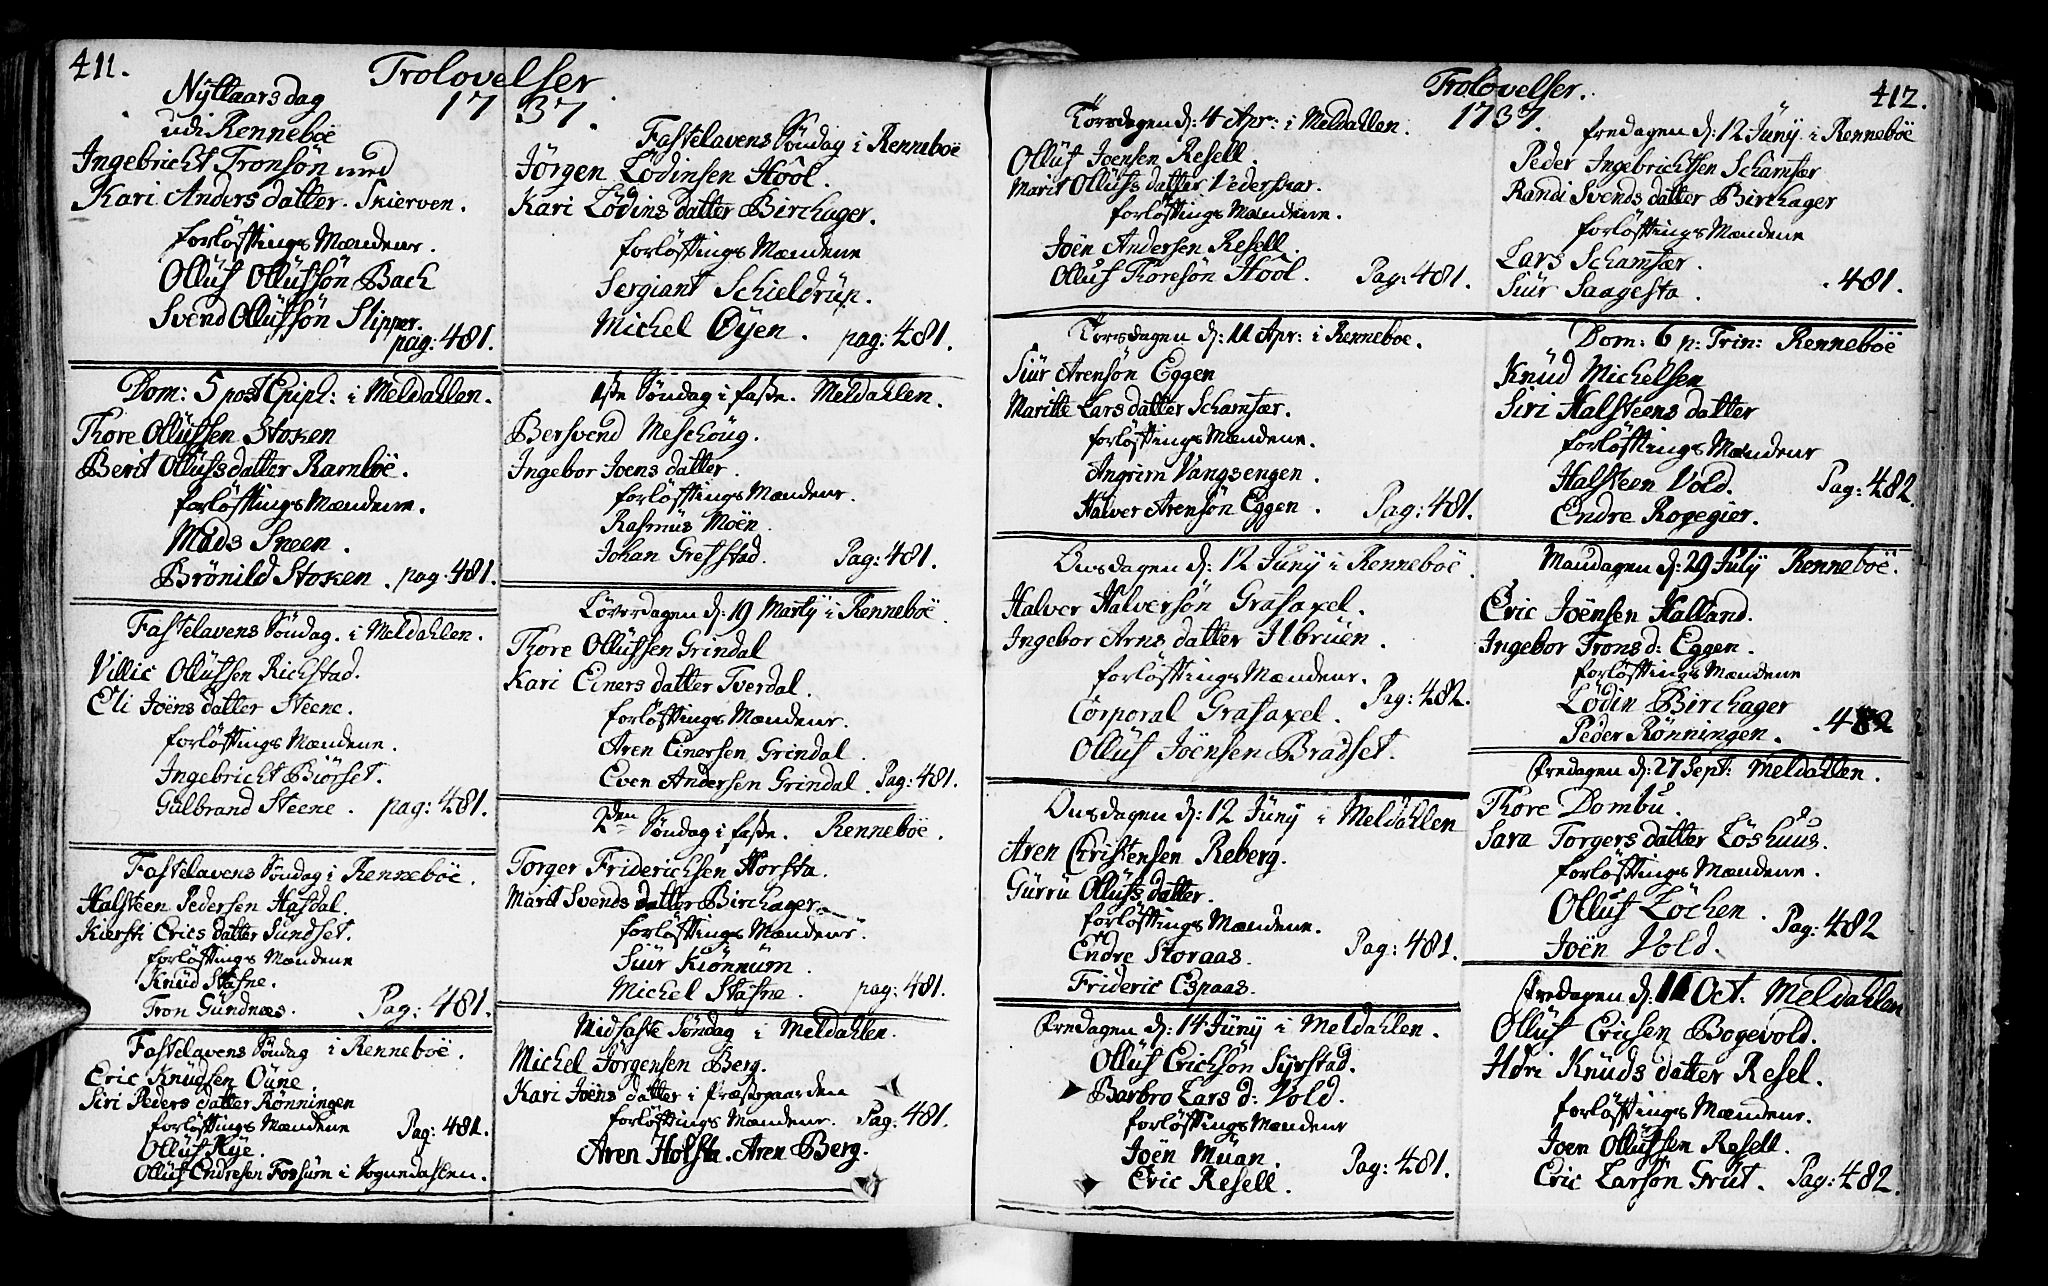 411.
Trolovelser
1737.
Nyttaarsdag
udi Renneböe
Ingebricht Tronsøn med
Kari Andersdatter. Skierven.
forløftings Mændene.
Olluf Ollufsön Bach
Svend Ollufsön Slipper.
pag: 481.
Dom: 5 post Epiph: i Meldahlen.
Thore Ollufsen Stoken
Berit Ollufsdatter Ramböe.
forløftings Mændene.
Mads Sneen.
Brönild Stoken. pag: 481.
Fastelavens Söndag. i Meldahlen.
Villic Ollufsen Richstad.
Eli Joensdatter Steene.
forløftings Mændene.
Ingebricht Biörset.
Gulbrand Steene. pag: 481.
Fastelavens Söndag i Renneböe.
Halsteen Pedersen Hasdal.
Kiersti Erics datter Sundset.
forløftings Mændene
Knüd Stafne.
Tron Gündnæs. Pag: 481.
Fastelavens Söndag i Renneböe.
Eric Knüdsen Oüne.
Siri Peders datter Rønningen
forløftings Mændene
Olluf Rye. Pag: 481.
Olluf Endresen Fossum i Sognedahlen.
Fastelavens Söndag i Renneböe
Jørgen Lödinsen Hool.
Kari Lödins datter Birchager.
forløftings Mændene
Sergiant Schieldrüp.
Michel Øyen. pag: 481.
1ste Søndag i faste. Meldahlen.
Bersvend Meschoug.
Ingebor Joens datter.
forløftings Mændene.
Rasmus Moen.
Johan Grefstad. Pag: 481.
Löverdagen d: 19 Martij i Renneböe.
Thore Ollufsen Grindal
Kari Einers datter Tverdal.
forløftings Mændene.
Aren Einersen Grindal.
Even Andersen Grindal. Pag: 481.
2den Søndag i faste. Renneböe.
Torger Friderichsen Horsta.
Marit Svends datter Birchager.
forløftings Mændene.
Siur Kiönnum.
Michel Stafne. pag: 481.
Midfaste Søndag i Meldahlen.
Michel Jörgensen Berg.
Kari Joens datter i Præstegaarden
forløftings Mændene. Pag: 481.
Aren Holsta. Aren Berg.
Trolovelser.
1737.
412.
Torsdagen d: 4 Apr: i Meldahlen.
Olluf Joensen Resell.
Marit Ollufs datter Vederskar.
forløftings Mændene.
Joen Andersen Resell.
Olluf Thoresön Hool. Pag: 481.
Torsdagen d: 11 Apr: i Renneboe.
Siur Arensön Eggen
Maritte Lars datter Schamfær.
forløftings Mændene.
Ingrim Vangsengen.
Halver Arensön Eggen. Pag: 481.
Onsdagen d: 12 Juny i Renneböe.
Halver Halversön Grafaxel.
Ingebor Arns datter Ilbruen.
forløftings Mændene.
Corporal Grafaxel. Pag: 482.
Olluf Joensen Bradset.
Onsdagen d: 12 Juny i Meldahlen
Aren Christensen Reberg.
Gurru Ollufs datter.
forløftings Mændene.
Endre Storaas. Pag: 481.
Frideric Espaas.
Fredagen d: 14 Juny i Meldahlen.
Olluf Erichsön Syrstad.
Barbro Lars d: Vold.
forløftings Mændene
Joen Muan.
Eric Resell. Pag: 481.
fredagen d: 12 Juny i Renneböe
Peder Ingebrichtsen Schamfær
Randi Svends datter Birchager
forløftings Mændene
Lars Schamfær.
Siur Saagesta. 481.
Dom: 6 p: Trin: Renneböe
Knud Michelsen
Siri Halsteens datter
forløftings Mændene
Halsteen Vold. Pag: 482.
Endre Rogegier.
Mandagen d: 29 July Renneböe.
Eric Joensen Halland.
Ingebor Trons d: Eggen.
forløftings Mændene
Lödin Birchager
Peder Rønningen. 482
Fredagen d: 27 Sept: Meldahlen.
Thore Dombu.
Sara Torgers datter Løshuus.
forløftings Mændene.
Olluf Løchen. Pag: 482
Joen Vold.
Fredagen d: 11 Oct: Meldahlen
Olluf Ericsen Bogevold.
Knuds datter Resel.
forløftings Mændene.
Joen Ollufsen Resell.
Eric Larsøn Grut. Pag: 482.